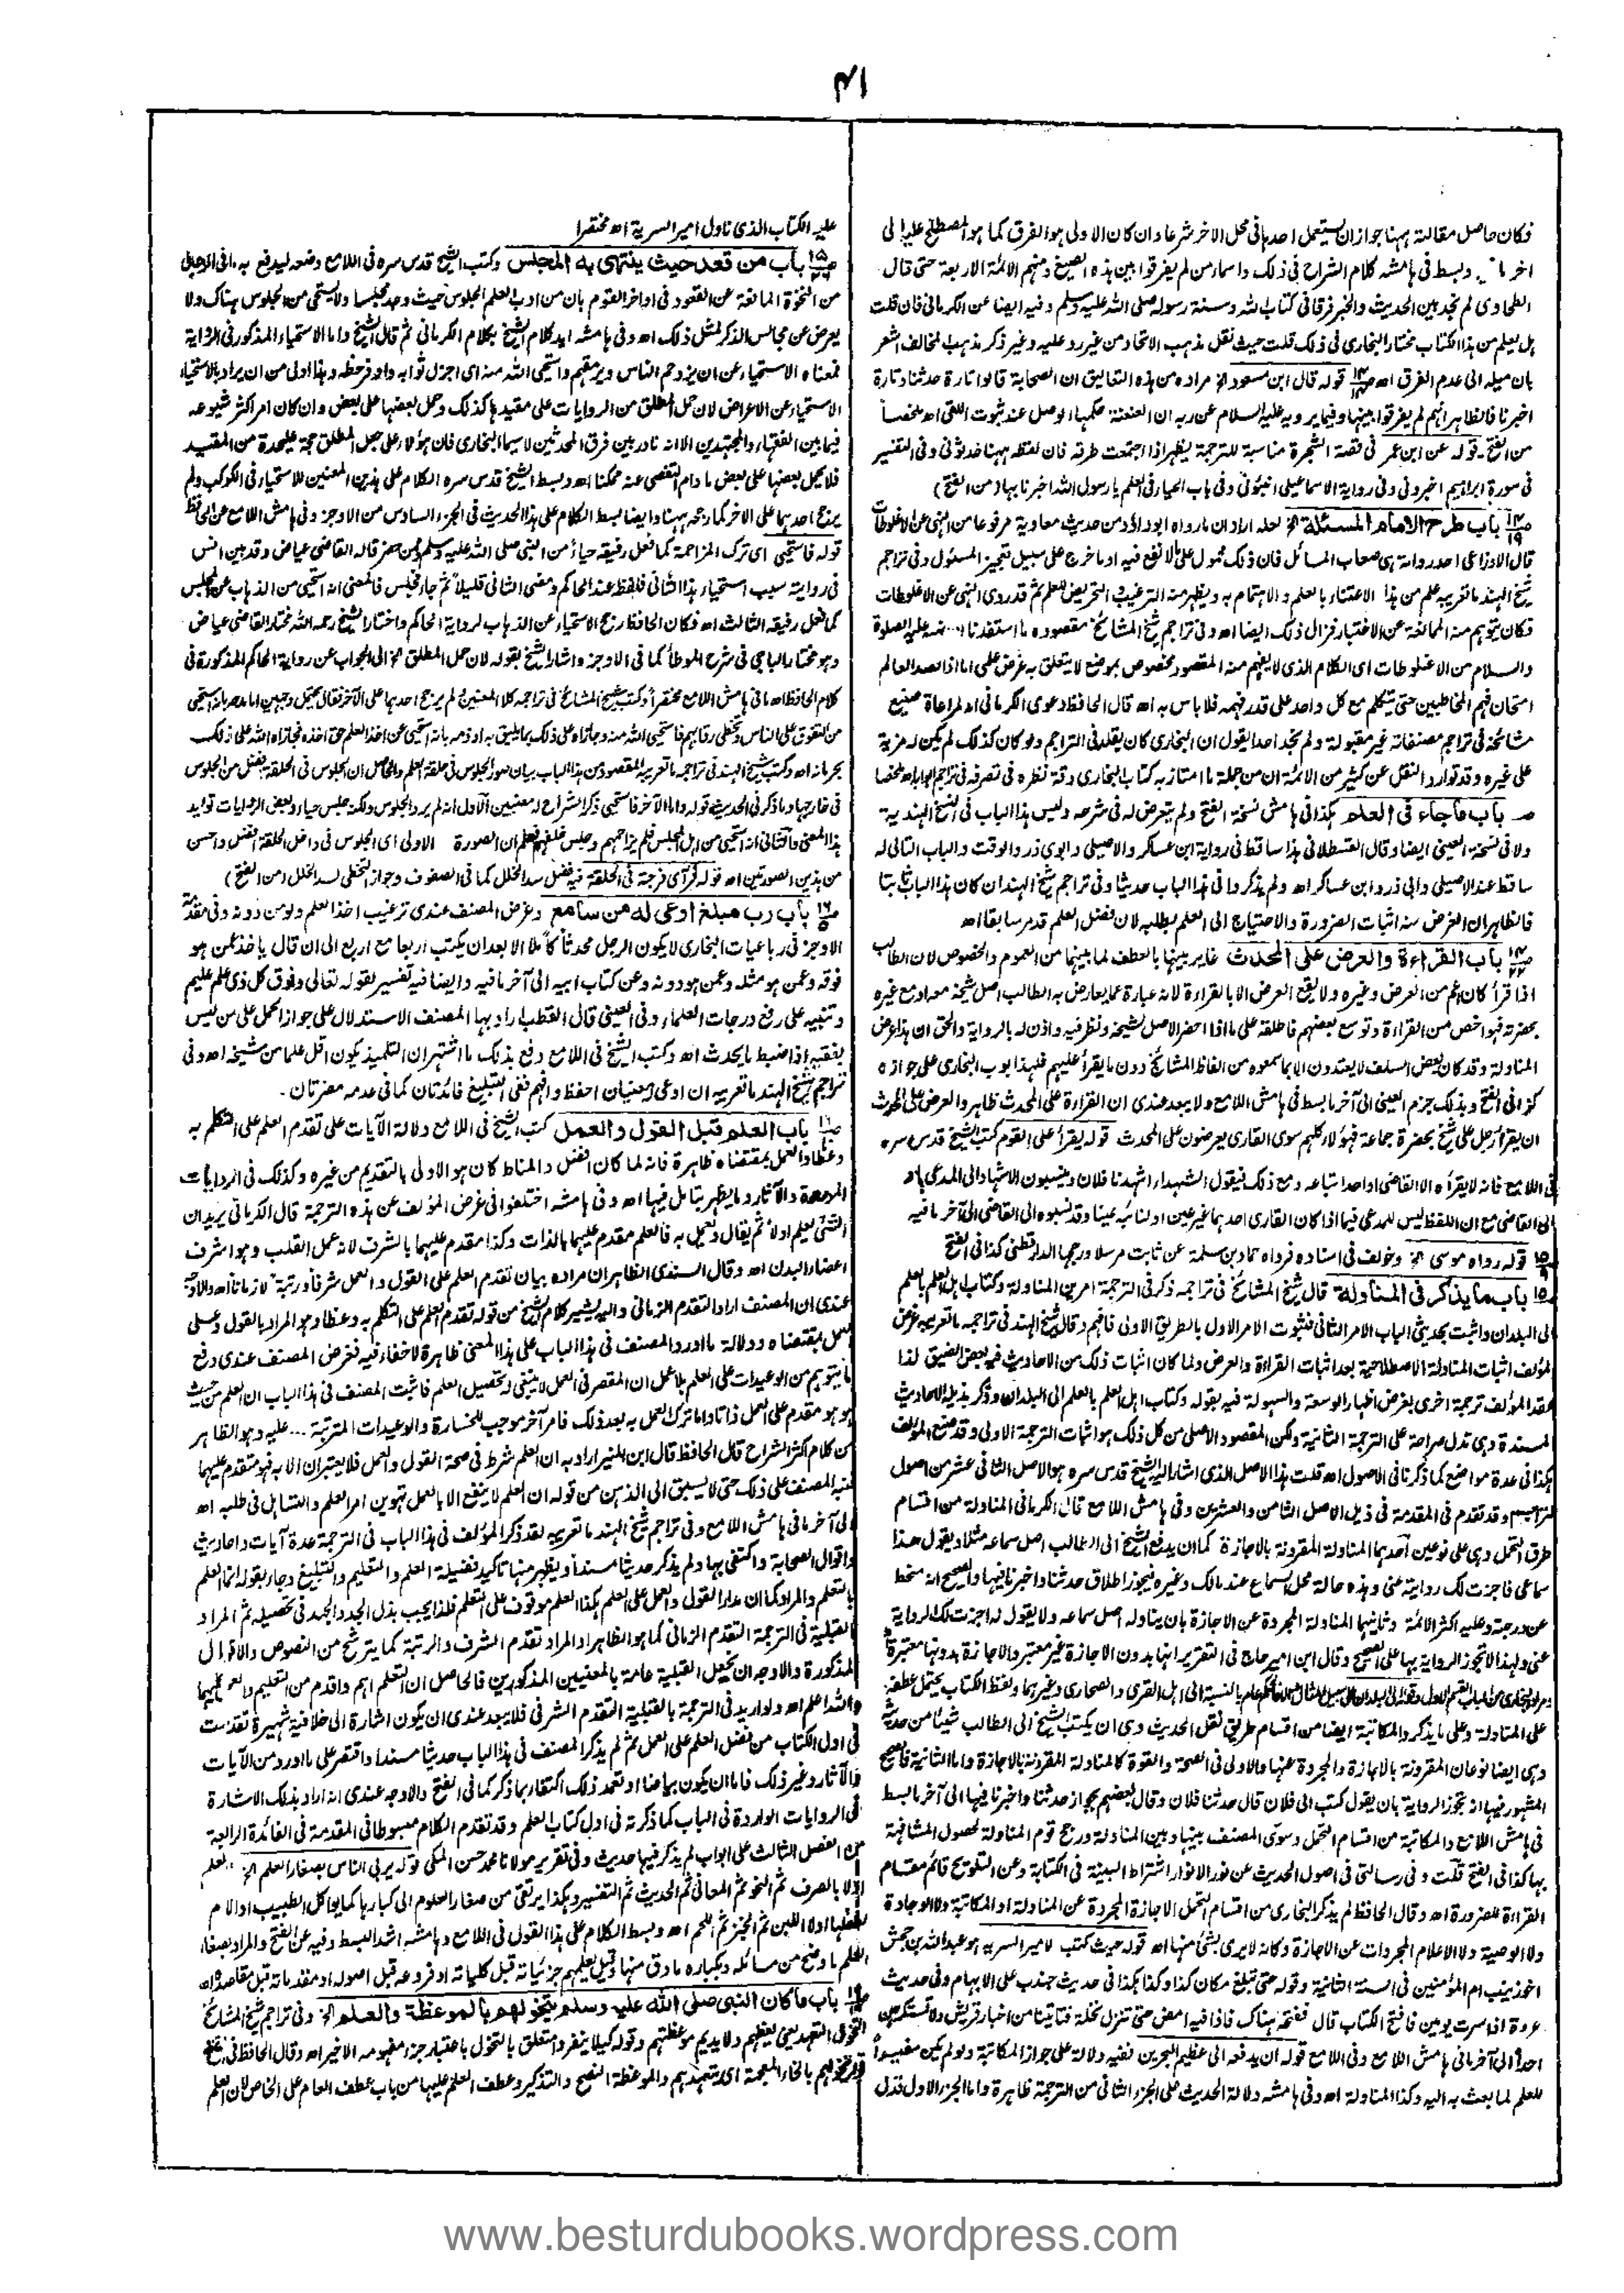 ٤١
فكان حاصل مقالته ههنا جواز ان يستعمل احدهما فى محل الآخر شرعا وان كان الاولى هو الفرق كما هو المصطلح عليه الى
وبسط فى هامشه كلام الشراح فى ذلك واسماء من لم يفرقوا بين هذه الصيغ ومنهم الائمة الاربعة حتى قال
الطحاوى لم نجد بين الحديث والخبر فرقا فى كتاب الله وسنة رسوله صلى الله عليه وسلم وفيه ايضا عن الكرمانى فان قلت
هل يعلم من هذا الكتاب مختار البخارى فى ذلك قلت حيث نقل مذهب الاتحاد من غير رد عليه وغير ذكر مذهب المخالف اشعر
بان ميله الى عدم الفرق اه قوله قال ابن مسعود الخ مراده من هذه التعاليق ان الصحابة قالوا تارة حدثنا وتارة
اخبرنا فالظاهر انهم لم يفرقوا بينها وفيما يرويه عليه السلام عن ربه ان العنعنة حكمها الوصل عند ثبوت اللقى اه ملخصا
من الفتح ـ قوله عن ابن عمر فى قصة الشجرة مناسبة للترجمة يظهر اذا اجتمعت طرقه فان لفظه ههنا فحدثونى وفى التفسير
فى سورة ابراهيم اخبرونى وفى رواية الاسماعيلى انبئونى وفى باب الحياء فى العلم يا رسول الله اخبرنا بها (من الفتح)
باب طرح الامام المسئلة الخ لعله اراد ان ما رواه ابو داؤد من حديث معاوية مرفوعا من النهى عن الاغلوطات
قال الاوزاعى احد رواته هى صعاب المسائل فان ذلك محمول على ما لا نفع فيه او ما خرج على سبيل تعجيز المسئول وفى تراجم
شيخ الهند ما تعريبه علم من هذا الاعتناء بالعلم والاهتمام به ويظهر منه الترغيب التحريض للعلم ثم قد روى النهى عن الاغلوطات
فكان يتوهم منه الممانعة عن الاختبار فزال ذلك ايضا اه وفى تراجم شيخ المشائخ مقصوده ما استفدنا ... عليه الصلوة
والسلام من الاغلوطات اى الكلام الذى لا يفهم منه المقصود مخصوص بموضع لا يتعلق به غرض علمى اما اذا قصد العالم
امتحان فهم المخاطبين حتى يتكلم مع كل واحد على قدر فهمه فلا باس به اه قال الحافظ دعوى الكرمانى انه لمراعاة صنيع
مشائخه فى تراجم مصنفاته غير مقبولة ولم نجد احدا يقول ان البخارى كان يقلد فى التراجم ولو كان كذلك لم يكن له مزية
على غيره وقد توارد النقل عن كثير من الائمة ان من جملة ما امتاز به كتاب البخارى دقة نظره فى تصرفه فى تراجم ابوابه اه ملخصا
باب ما جاء فى العلم هكذا فى هامش نسخة الفتح ولم يتعرض له فى شرحه وليس هذا الباب فى النسخ الهندية
ولا فى نسخة العينى ايضا وقال القسطلانى هذا ساقط فى رواية ابن عساكر والاصيلى وابوى ذر والوقت والباب التالى له
ساقط عند الاصيلى وابى ذر وابن عساكر اه ولم يذكروا فى هذا الباب حديثا وفى تراجم شيخ الهند ان كان هذا الباب ثابتا
فالظاهر ان الغرض منه اثبات الضرورة والاحتياج الى العلم بطلبه لان فضل العلم قد مر سابقا اه
باب القراءة والعرض على المحدث غاير بينهما بالعطف لما بينهما من العموم والخصوص لان الطالب
اذا قرأ كان اعم من العرض وغيره ولا يقع العرض الا بالقراءة لانه عبارة عما يعارض به الطالب اصل شيخه معه او مع غيره
بحضرته فهو اخص من القراءة وتوسع بعضهم فاطلقه على ما اذا احضر الاصل لشيخه ونظر فيه واذن له بالرواية والحق ان هذا عرض
المناولة وقد كان بعض السلف لا يعتدون الا بما سمعوه من الفاظ المشائخ دون ما يقرأ عليهم فلهذا بوب البخارى على جوازه
كذا فى الفتح وبذلك جزم العينى الى آخر ما بسط فى هامش اللامع ولا يبعد عندى ان القراءة على المحدث ظاهر والعرض على المحدث
ان يقرأ رجل على شيخ بحضرة جماعة فهؤلاء كلهم سوى القارى يعرضون على المحدث قوله يقرأ على القوم كتب الشيخ قدس سره
فى اللامع فانه لا يقرأه الا القاضى او احد اتباعه ومع ذلك فيقول الشهداء اشهدنا فلان وينسبون الاشهاد الى المدعى او
الى القاضى مع ان اللفظ ليس للمدعى فيما اذا كان القارى احدهما غير عين او نائبه عينا وقد نسبوه الى القاضى الى آخر ما فيه
قوله رواه موسى الخ وخولف فى اسناده فرواه حماد بن سلمة عن ثابت مرسلا ورجحها الدارقطنى كذا فى الفتح
باب ما يذكر فى المناولة قال شيخ المشائخ فى تراجمه ذكر فى الترجمة امرين المناولة وكتاب اهل العلم بالعلم
الى البلدان واثبت بحديثى الباب الامر الثانى فثبوت الامر الاول بالطريق الاولى فافهم وقال شيخ الهند فى تراجمه ما تعريبه غرض
المؤلف اثبات المناولة الاصطلاحية بعد اثبات القراءة والعرض ولما كان اثبات ذلك من الاحاديث فيه بعض الضيق لذا
عقد المؤلف ترجمة اخرى بغرض اظهار الوسعة والسهولة فيه بقوله وكتاب اهل العلم بالعلم الى البلدان وذكر بذيله الاحاديث
المسندة وهى تدل صراحة على الترجمة الثانية ولكن المقصود الاصلى من كل ذلك هو اثبات الترجمة الاولى وقد صنع المؤلف
هكذا فى عدة مواضع كما ذكرنا فى الاصول اه قلت هذا الاصل الذى اشار اليه الشيخ قدس سره هو الاصل الثانى عشر من اصول
التراجم وقد تقدم فى المقدمة فى ذيل الاصل الثامن والعشرين وفى هامش اللامع قال الكرمانى المناولة من اقسام
طرق التحمل وهى على نوعين احدهما المناولة المقرونة بالاجازة كما ان يدفع الشيخ الى الطالب اصل سماعه مثلا ويقول هذا
سماعى فاجزت لك روايته عنى وهذه حالة محل السماع عند مالك وغيره فيجوز اطلاق حدثنا واخبرنا فيها والصحيح انه منحط
عن درجته وعليه اكثر الائمة وثانيها المناولة المجردة عن الاجازة بان يناوله اصل سماعه ولا يقول له اجزت لك الرواية
عنى ولهذا لا تجوز الرواية بها على الصحيح وقال ابن امير حاج فى التقرير انها بدون الاجازة غير معتبر والاجازة بدونها معتبرة
ومراد البخارى من الباب القسم الاول وقوله الى البلدان على سبيل المثال والا فالحكم عام بالنسبة الى اهل القرى والصحارى وغيرهما ولفظ الكتاب يحتمل عطفه
على المناولة وعلى ما يذكر والمكاتبة ايضا من اقسام طريق نقل الحديث وهى ان يكتب الشيخ الى الطالب شيئا من حديثه
وهى ايضا نوعان المقرونة بالاجازة والمجردة عنها والاولى فى الصحة والقوة كالمناولة المقرونة بالاجازة واما الثانية فالصحيح
المشهور فيها انه تجوز الرواية بان يقول كتب الى فلان قال حدثنا فلان وقال بعضهم بجواز حدثنا واخبرنا فيها الى آخر ما بسط
فى هامش اللامع والمكاتبة من اقسام التحمل وسوى المصنف بينها وبين المناولة ورجح قوم المناولة لحصول المشافهة
بها كذا فى الفتح قلت وفى رسالتى فى اصول الحديث عن نور الانوار اشتراط البينة فى الكتابة وعن التلويح قائم مقام
القراءة للضرورة اه وقال الحافظ لم يذكر البخارى من اقسام التحمل الاجازة المجردة عن المناولة او المكاتبة ولا الوجادة
ولا الوصية ولا الاعلام المجردات عن الاجازة وكانه لا يرى بشئ منها اه قوله حيث كتب لامير السرية هو عبدالله بن جحش
اخو زينب ام المؤمنين فى السنة الثانية وقوله حتى تبلغ مكان كذا وكذا هكذا فى حديث جندب على الابهام وفى حديث
عروة اذا سرت يومين فافتح الكتاب قال ففتحه هناك فاذا فيه امض حتى تنزل نخلة فتاتينا من اخبار قريش ولا تستكرهن
احدا الى آخر ما فى هامش اللامع وفى اللامع قوله ان يدفعه الى عظيم البحرين ففيه دلالة على جواز المكاتبة ولو لم يكن مفيدا
للعلم لما بعث به اليه وكذا المناولة اه وفى هامشه دلالة الحديث على الجزء الثانى من الترجمة ظاهرة واما الجزء الاول فتدل
عليه الكتاب الذى ناول امير السرية اه مختصرا
باب من قعد حيث ينتهى به المجلس وكتب الشيخ قدس سره فى اللامع وضعه ليدفع به ما فى الرجال
من النخوة المانعة عن القعود فى اواخر القوم بان من ادب العلم الجلوس حيث وجد مجلسا ولا يستحى من الجلوس هناك ولا
يعرض عن مجالس الذكر لمثل ذلك اه وفى هامشه ايد كلام الشيخ بكلام الكرمانى ثم قال الشيخ واما الاستحياء المذكور فى الرواية
فمعناه الاستحياء عن ان يزدحم الناس ويزعجهم واستحى الله منه اى اجزل ثوابه واوفر حظه وهذا اولى من ان يراد بالاستحياء
الاستحياء عن الاعراض لان حمل المطلق من الروايات على مقيدها كذلك وحمل بعضها على بعض وان كان امرا كثر شيوعه
فيما بين الفقهاء والمجتهدين الا انه نادر بين فرق المحدثين لا سيما البخارى فان هؤلاء على جعل المطلق حجة عليحدة من المقيد
فلا يحمل بعضها على بعض ما دام التقصى عنه ممكنا اه وبسط الشيخ قدس سره الكلام على هذين المعنيين للاستحياء فى الكوكب ولم
يرجح احدهما على الآخر كما رجحه ههنا وايضا بسط الكلام على هذا الحديث فى الجزء السادس من الاوجز وفى هامش اللامع عن الحافظ
قوله فاستحيى اى ترك المزاحمة كما فعل رفيقه حياء من النبى صلى الله عليه وسلم وممن حضر قاله القاضى عياض وقد بين انس
فى روايته سبب استحياء هذا الثانى فلفظه عند الحاكم ومضى الثانى قليلا ثم جاء فجلس فالمعنى انه استحيى من الذهاب عن المجلس
كما فعل رفيقه الثالث اه فكان الحافظ رجح الاستحياء عن الذهاب لرواية الحاكم واختار الشيخ رحمه الله مختار القاضى عياض
وهو مختار الباجى فى شرح الموطأ كما فى الاوجز واشار الشيخ بقوله لان حمل المطلق الخ الى الجواب عن رواية الحاكم المذكورة فى
كلام الحافظ اه ما فى هامش اللامع مختصرا وكتب شيخ المشائخ فى تراجمه كلا المعنيين ولم يرجح احدهما على الآخر فقال يحتمل وجهين اما مدحه بانه استحيى
من التفوق على الناس وتخطى رقابهم فاستحيى الله منه وجازاه على ذلك بما يليق به او ذمه بانه استحيى عن اخذ العلم حق اخذه فجازاه الله على ذلك
بحرمانه اه وكتب شيخ الهند فى تراجمه ما تعريبه المقصود من هذا الباب بيان صور الجلوس فى حلقة العلم والحاصل ان الجلوس فى الحلقة افضل من الجلوس
فى خارجها وما ذكر فى الحديث قوله واما الآخر فاستحيى ذكر الشراح له معنيين الاول انه لم يرد الجلوس ولكنه جلس حياء وبعض الروايات تؤيد
هذا المعنى والثانى انه استحيى من اهل المجلس فلم يزاحمهم وجلس خلفهم فعلم ان الصورة الاولى اى الجلوس فى داخل الحلقة افضل واحسن
من هذين الصورتين اه قوله فرأى فرجة فى الحلقة فيه فضل سد الخلل كما فى الصفوف وجواز التخطى لسد الخلل (من الفتح)
باب رب مبلغ اوعى له من سامع وغرض المصنف عندى ترغيب اخذ العلم ولو من دونه وفى مقدمة
الاوجز فى رباعيات البخارى لا يكون الرجل محدثا كاملا الا بعد ان يكتب اربعا مع اربع الى ان قال ياخذ عمن هو
فوقه وعمن هو مثله وعمن هو دونه وعن كتاب ابيه الى آخر ما فيه وايضا فيه تفسير لقوله تعالى وفوق كل ذى علم عليم
وتنبيه على رفع درجات العلماء وفى العينى قال القطب اراد بهذا المصنف الاستدلال على جواز الحمل على من ليس
بفقيه اذا ضبط ما يحدث اه وكتب الشيخ فى اللامع دفع بذلك ما اشتهر ان التلميذ يكون اقل علما من شيخه اه وفى
تراجم شيخ الهند ما تعريبه ان اوعى له معنيان احفظ وافهم ففى التبليغ فائدتان كما فى عدمه مضرتان ـ
باب العلم قبل القول والعمل كتب الشيخ فى اللامع دلالة الآيات على تقدم العلم على التكلم به
وعظا والعمل بمقتضاه ظاهرة فانه لما كان الفضل والمناط كان هو الاولى بالتقديم من غيره وكذلك فى الروايات
المرفوعة والآثار وما يظهر بتامل فيها اه وفى هامشه اختلفوا فى غرض المؤلف عن هذه الترجمة قال الكرمانى يريد ان
الشئ يعلم اولا ثم يقال ويعمل به فالعلم مقدم عليهما بالذات وكذا مقدم عليهما بالشرف لانه عمل القلب وهو اشرف
اعضاء البدن اه وقال السندى الظاهر ان مراده بيان تقدم العلم على القول والعمل شرفا ورتبة لا زمانا اه والاوجه
عندى ان المصنف اراد التقدم الزمانى واليه يشير كلام الشيخ من قوله تقدم العلم على التكلم به وعظا وهو المراد بالقول وعلى
العمل بمقتضاه ودلالة ما اورد المصنف فى هذا الباب على هذا المعنى ظاهرة لا خفاء فيه فغرض المصنف عندى دفع
ما يتوهم من الوعيدات على العلم بلا عمل ان المقصر فى العمل لا ينبغى له تحصيل العلم فاثبت المصنف فى هذا الباب ان العلم من حيث
هو هو مقدم على العمل ذاتا واما ترك العمل به بعد ذلك فامر آخر موجب للخسارة والوعيدات المترتبة ... عليه وهو الظاهر
من كلام اكثر الشراح قال الحافظ قال ابن المنير اراد به ان العلم شرط فى صحة القول والعمل فلا يعتبران الا به فهو متقدم عليهما
فنبه المصنف على ذلك حتى لا يسبق الى الذهن من قوله ان العلم لا ينفع الا بالعمل تهوين امر العلم والتساهل فى طلبه اه
الى آخر ما فى هامش اللامع وفى تراجم شيخ الهند ما تعريبه لقد ذكر المؤلف فى هذا الباب فى الترجمة عدة آيات واحاديث
واقوال الصحابة واكتفى بها ولم يذكر حديثا مسندا ويظهر منها تاكيد فضيلة العلم والتعليم والتبليغ وجاء بقوله انما العلم
بالتعلم والمراد كما ان مدار القول والعمل على العلم هكذا العلم موقوف على التعلم فلذا يجب بذل الجد والجهد فى تحصيله ثم المراد
بالقبلية فى الترجمة التقدم الزمانى كما هو الظاهر او المراد تقدم الشرف والرتبة كما يترشح من النصوص والاقوال
المذكورة والاوجه ان تجعل القبلية عامة بالمعنيين المذكورين فالحاصل ان التعلم اهم واقدم من التعليم والعمل كليهما
والله اعلم اه ولو اريد فى الترجمة بالقبلية التقدم الشرفى فلا يبعد عندى ان يكون اشارة الى خلافية شهيرة تقدمت
فى اول الكتاب من فضل العلم على العمل ثم لم يذكر المصنف فى هذا الباب حديثا مسندا واقتصر على ما اورد من الآيات
والآثار وغير ذلك فاما ان يكون بيض له او تعمد ذلك اكتفاء بما ذكر كما فى الفتح والاوجه عندى انه اراد بذلك الاشارة
الى الروايات الواردة فى الباب كما ذكرته فى اول كتاب العلم وقد تقدم الكلام مبسوطا فى المقدمة فى الفائدة الرابعة
من الفصل الثالث على ابواب لم يذكر فيها حديث وفى تقرير مولانا محمد حسن المكى قوله يربى الناس بصغار العلم الخ
اولا بالصرف ثم النحو ثم المعانى ثم الحديث ثم التفسير وهكذا يرتقى من صغار العلوم الى كبارها كما يؤاكل الطبيب او الام
طفلها اولا اللبن ثم الخبز ثم اللحم اه وبسط الكلام على هذا القول فى اللامع وهامشه اشد البسط وفيه عن الفتح والمراد بصغار
العلم ما وضح من مسائله وبكباره ما دق منها وقيل يعلمهم جزئياته قبل كلياته او فروعه قبل اصوله او مقدماته قبل مقاصده اه
باب ما كان النبى صلى الله عليه وسلم يتخولهم بالموعظة والعلم الخ وفى تراجم شيخ المشائخ
التخول التعهد يعنى يعظهم ولا يديم موعظتهم وقوله كيلا ينفروا متعلق بالتخول باعتبار جزء مفهومه الاخير اه وقال الحافظ فى الفتح
قوله يتخولهم بالخاء المعجمة اى يتعهدهم والموعظة النصح والتذكير وعطف العلم عليها من باب عطف العام على الخاص لان العلم
www.besturdubooks.wordpress.com